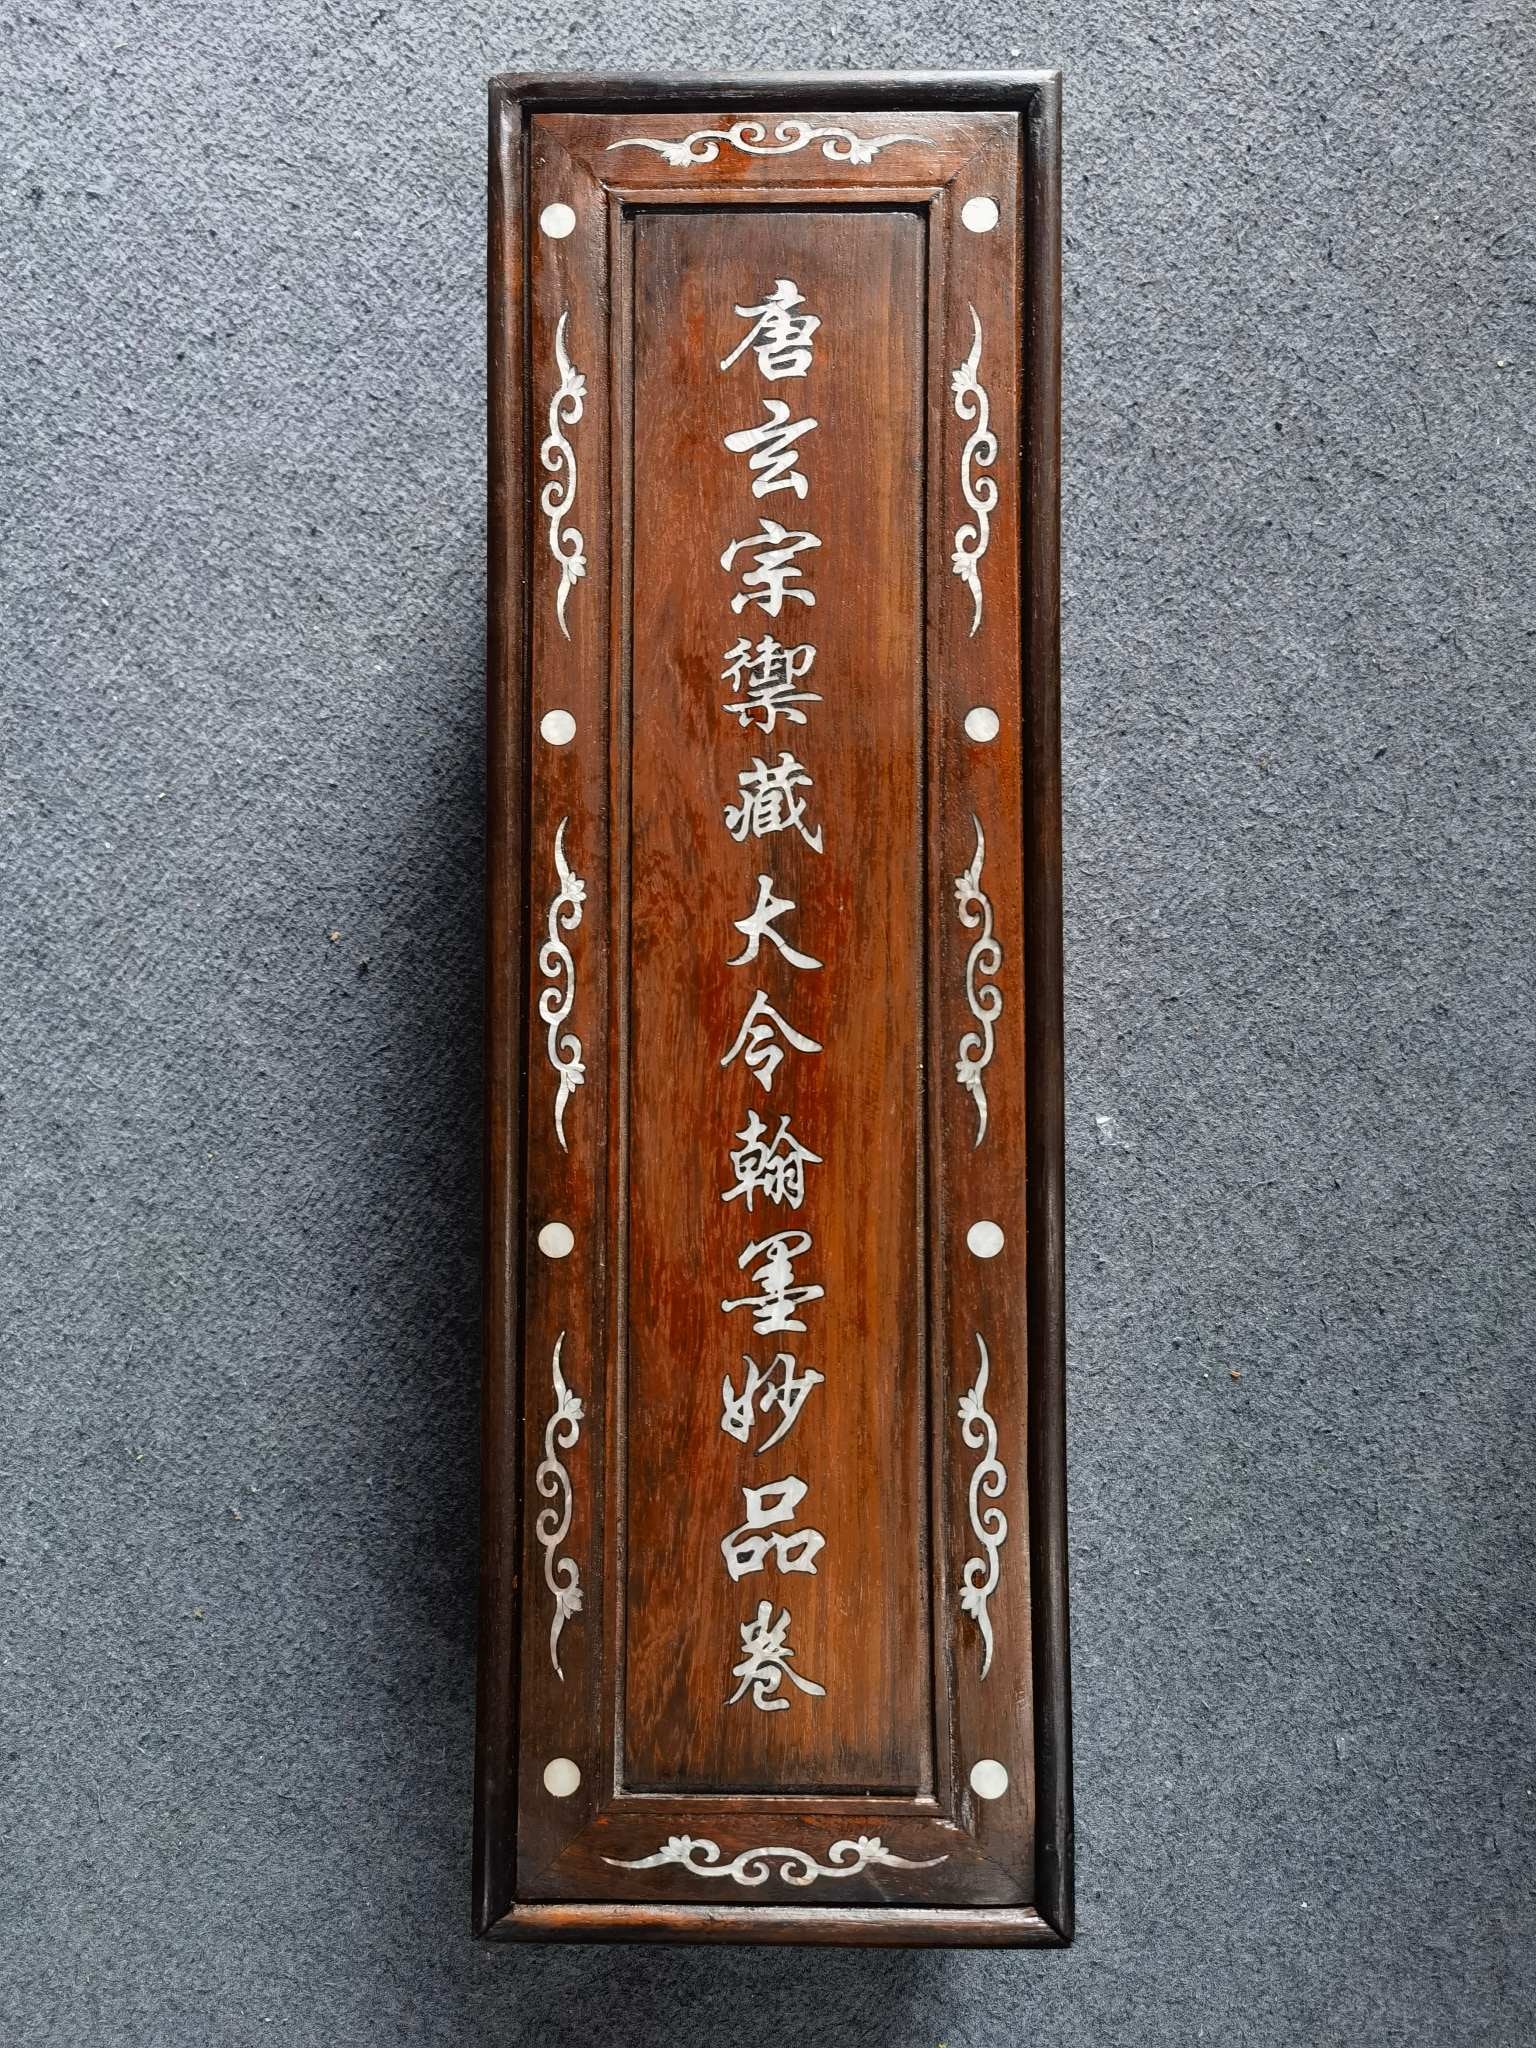 唐玄宗禦藏大令翰墨妙品卷